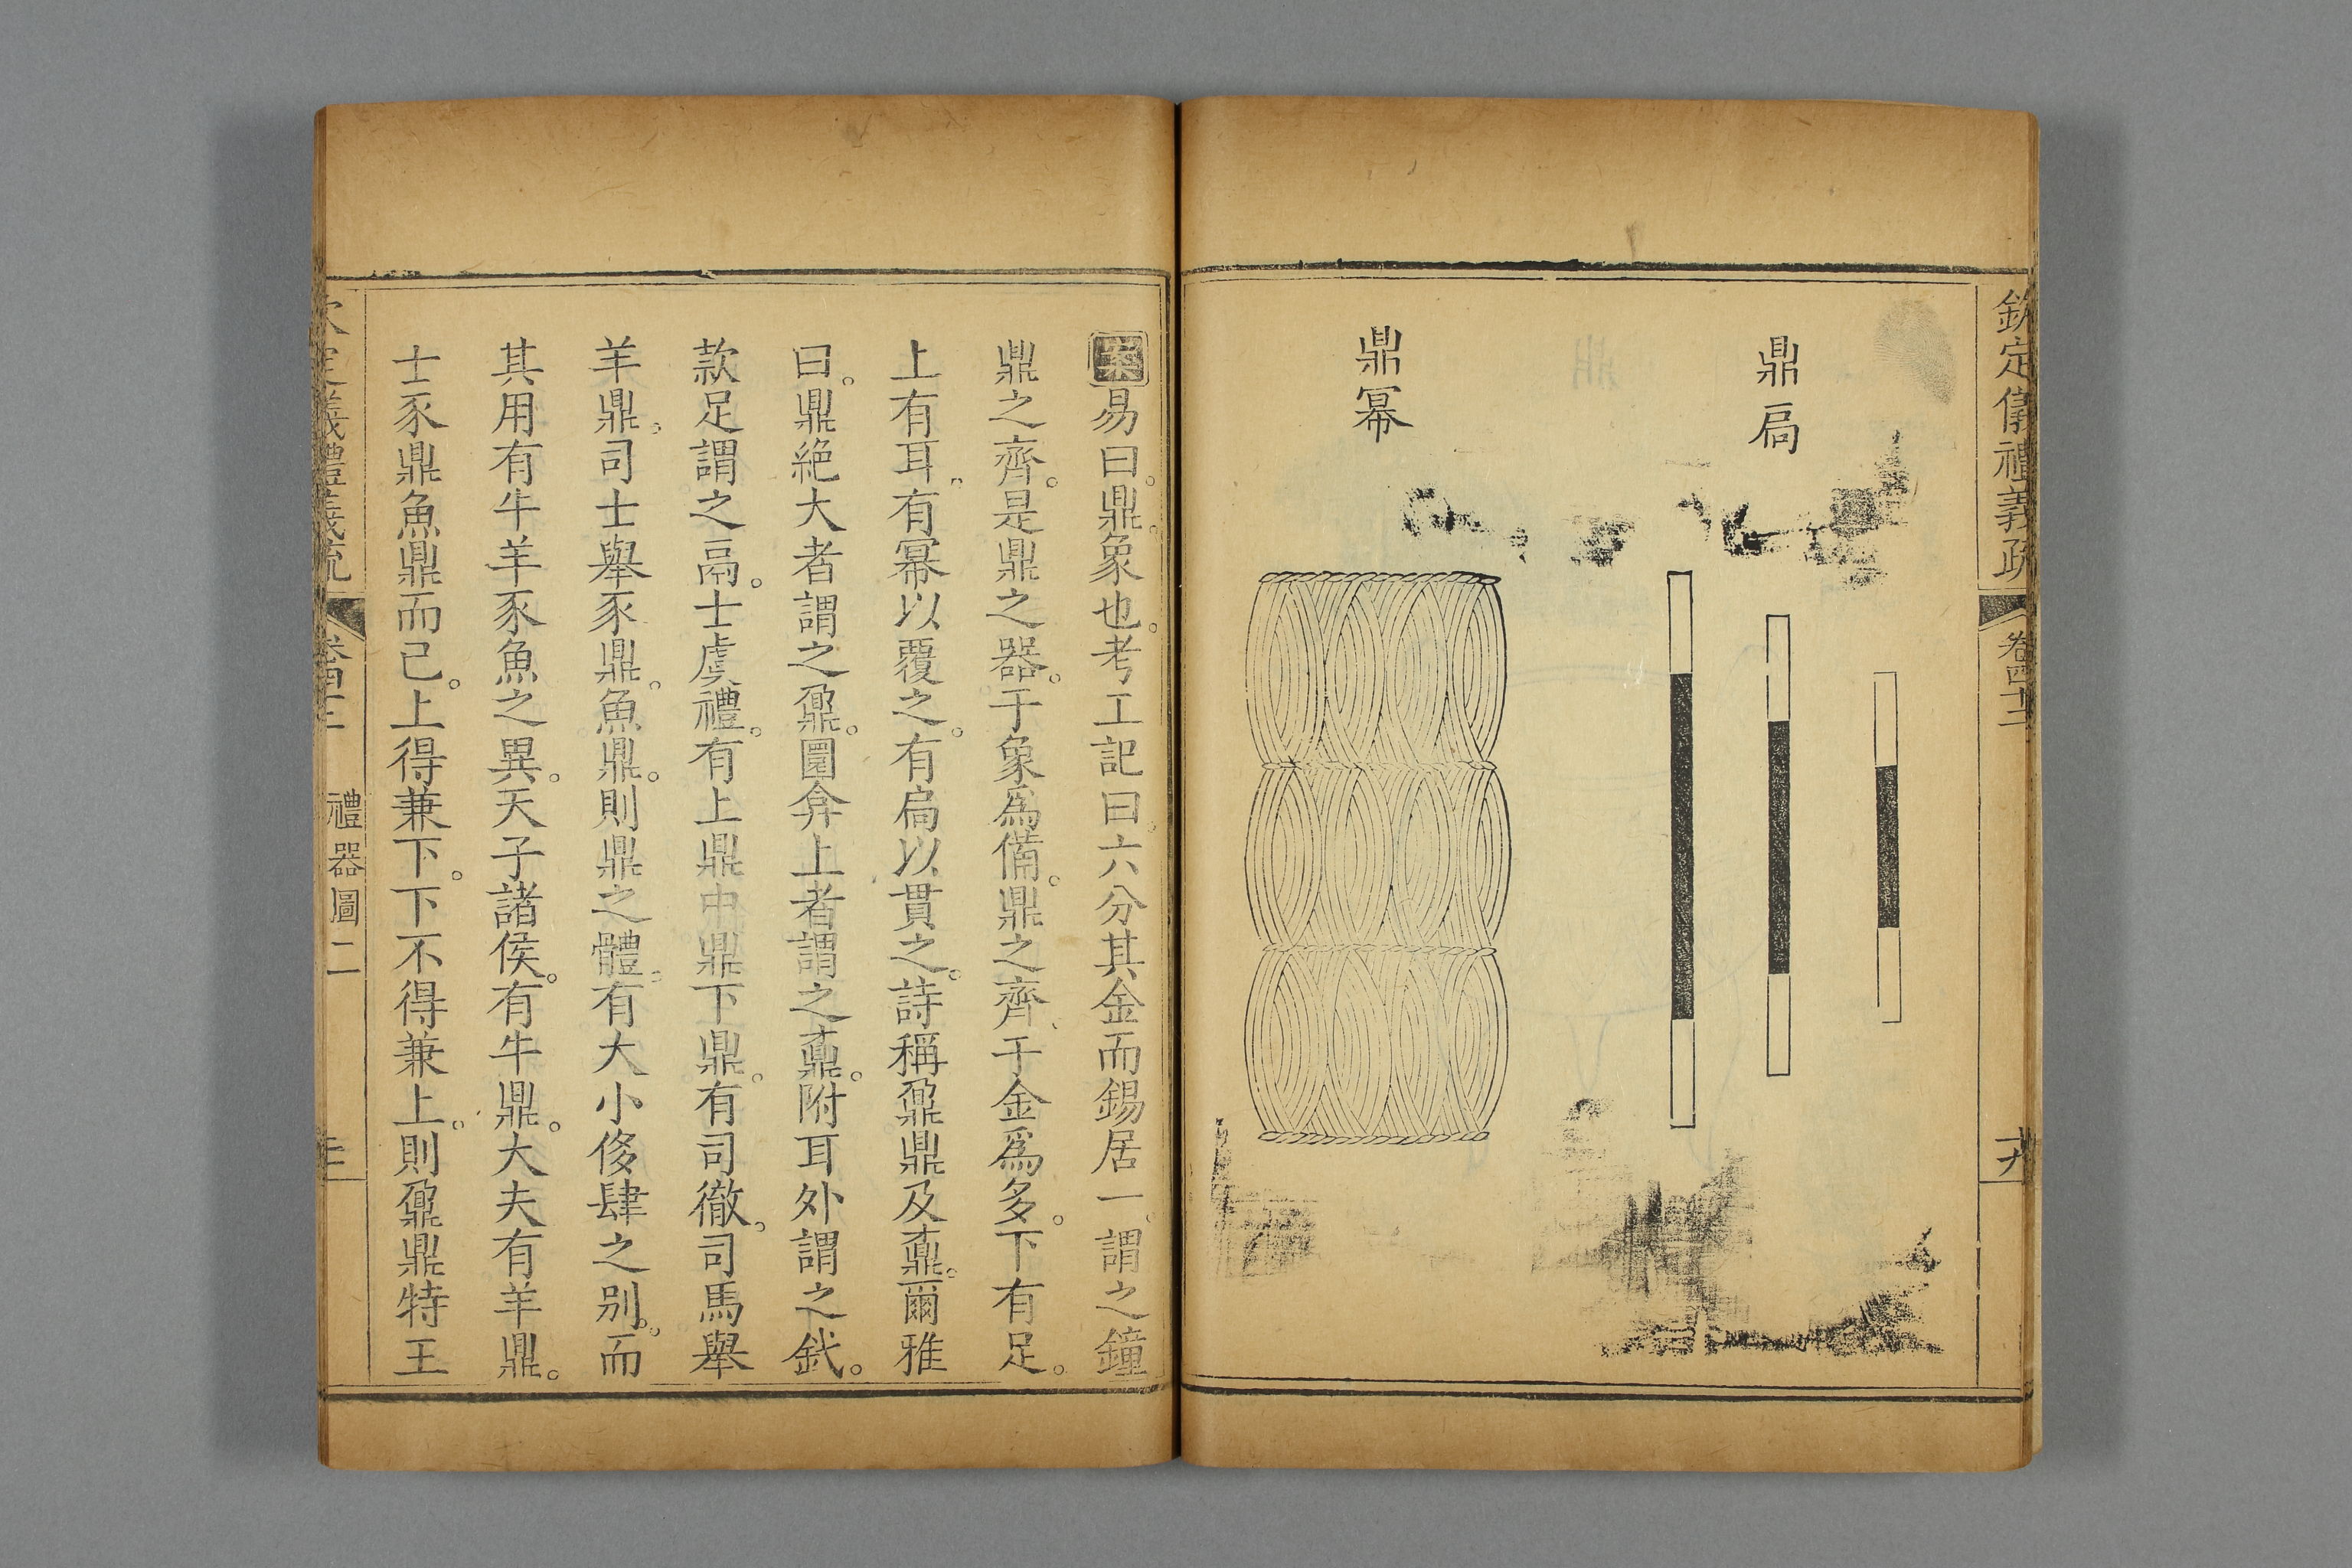 欽定儀禮義疏
卷四十二
十九
鼎扃
鼎冪
案易曰鼎象也考工記曰六分其金而錫居一謂之鐘
鼎之齊是鼎之器于象爲備鼎之齊于金爲多下有足
上有耳有冪以覆之有扃以貫之詩稱鼐鼎及鼒爾雅
曰鼎絕大者謂之鼐圜弇上者謂之鼒附耳外謂之釴
款足謂之鬲士虞禮有上鼎中鼎下鼎有司徹司馬舉
羊鼎司士舉豕鼎魚鼎則鼎之體有大小侈肆之別而
其用有牛羊豕魚之異天子諸侯有牛鼎大夫有羊鼎
士豕鼎魚鼎而已上得兼下下不得兼上則鼐鼎特王
禮器圖二